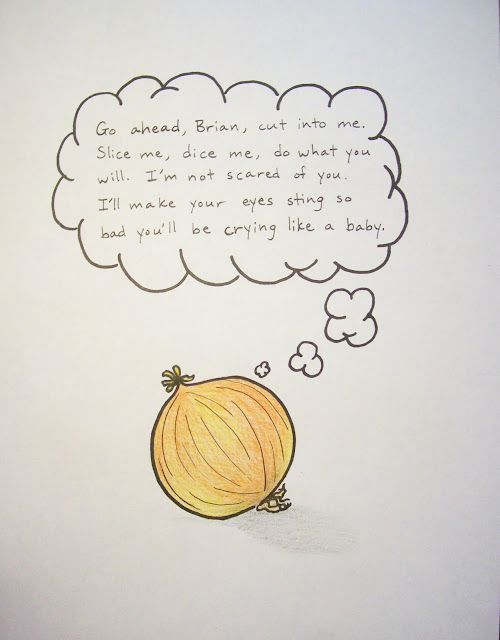 Go ahead, Brian, cut into me.
Slice me, dice me, do what you
will. I'm not scared of you.
I'll make your eyes sting so
bad you'll be crying like a baby.